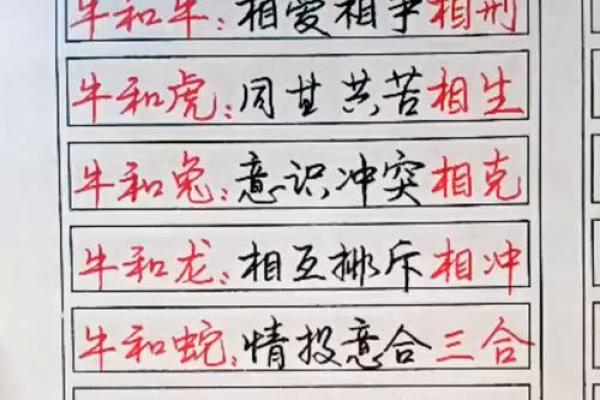 牛和牛:相爱相争相刑
牛和虎:同甘共苦相生
牛和兔:意识冲突相克
牛和龙:相互排斥相冲
牛和蛇:情投意合三合